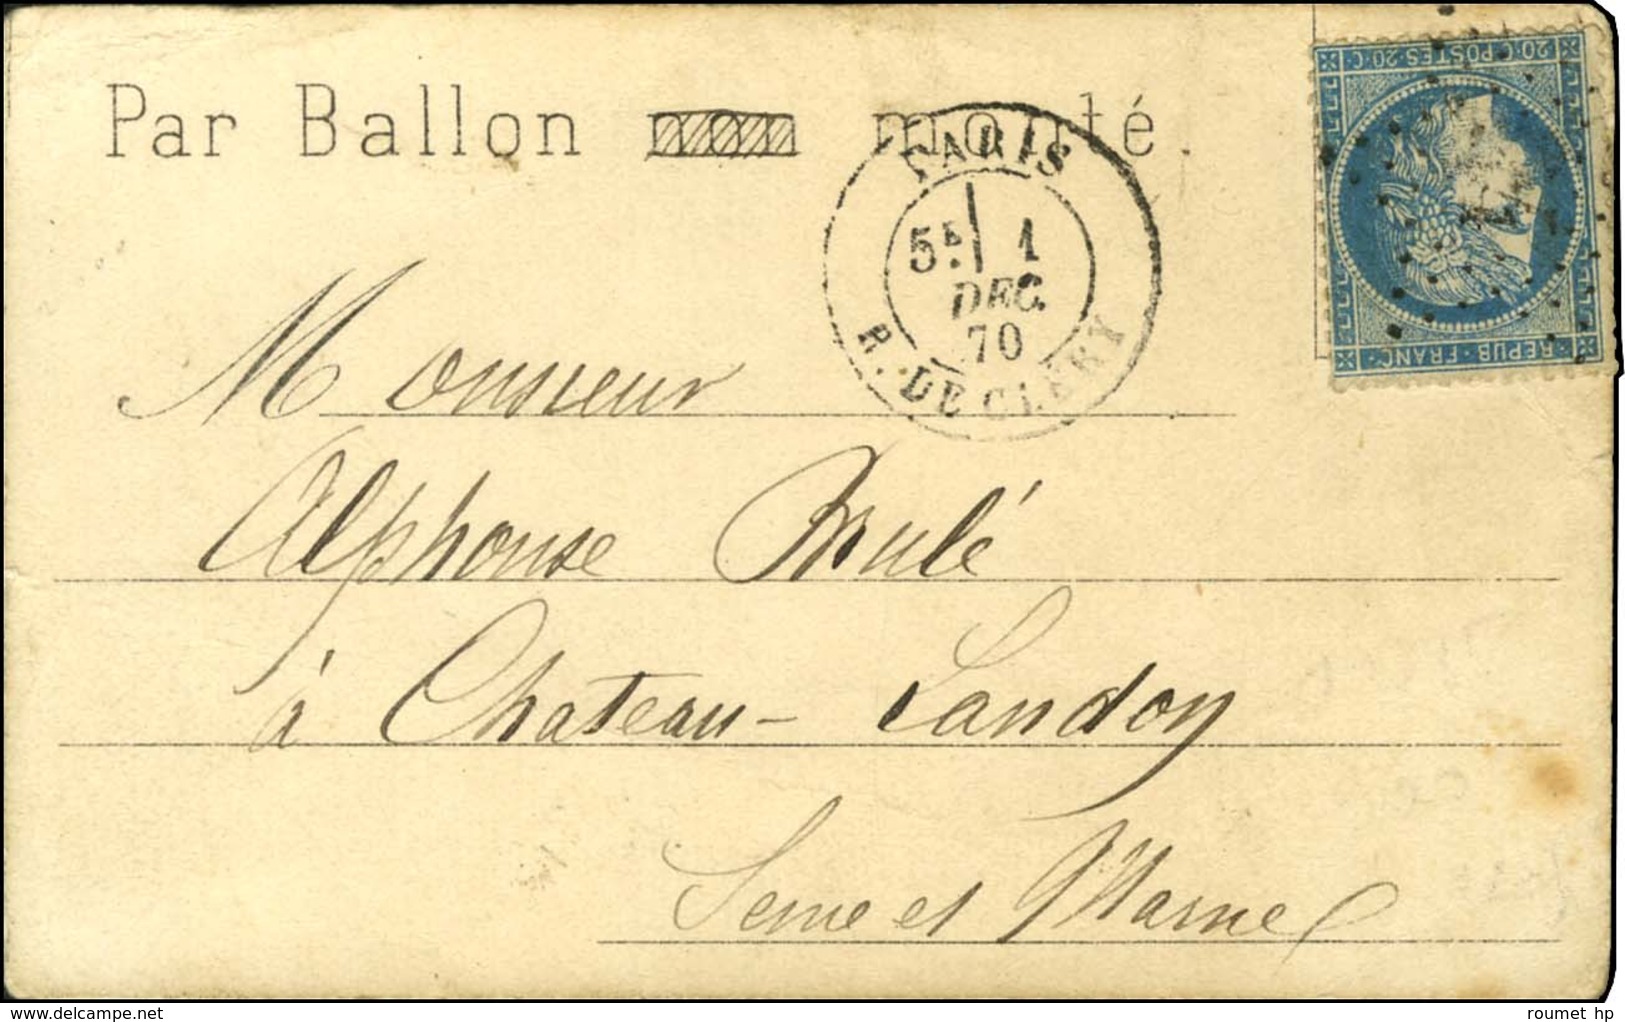 Par Ballon non monté.
PARIS
5E 1
DEC.
70
R. DE CLERY
20·C·POSTES·20·C
REPUB·FRANC
Monsieur
Alphonse Brulé
à Chateau-Landon
Seine et Marne
roumet hp
www.delcampe.net